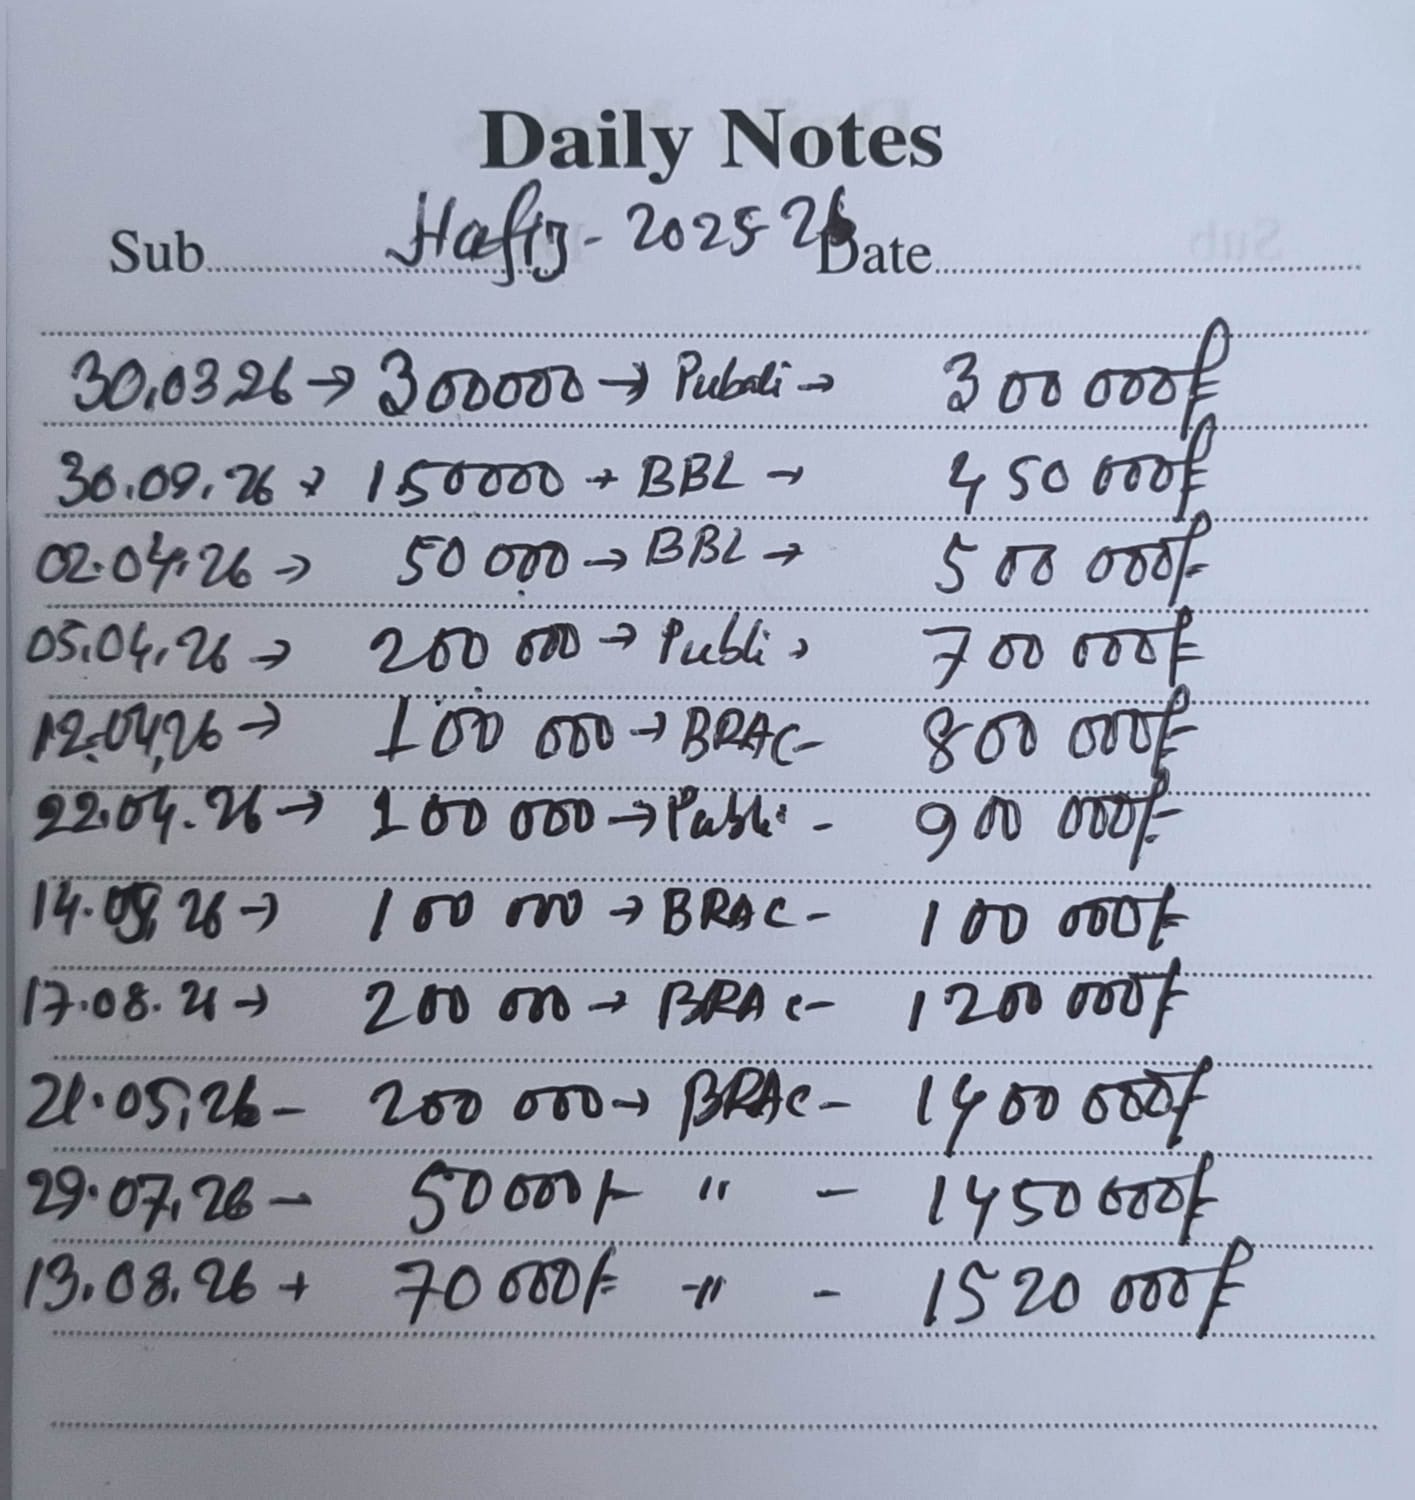 Daily Notes
Sub Hafiz - 2025 26 Date
30.03.26 → 300000 → Pubali → 300 000/-
30.09.26 → 150000 → BBL → 450 000/-
02.04.26 → 50 000 → BBL → 500 000/-
05.04.26 → 200 000 → Publi → 700 000/-
12.04.26 → 100 000 → BRAC - 800 000/-
22.04.26 → 100 000 → Publi - 900 000/-
14.05.26 → 100 000 → BRAC - 100 000/-
17.08.21 → 200 000 → BRAC - 1200 000/-
21.05.26 - 200 000 → BRAC - 1400 000/-
29.07.26 - 50 000/- " - 1450 000/-
13.08.26 + 70 000/- -" - 1520 000/-